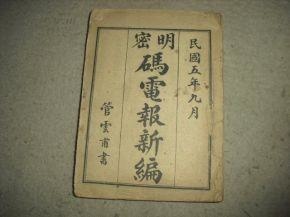 民國五年九月
明密
碼電報新編
管雲甫書